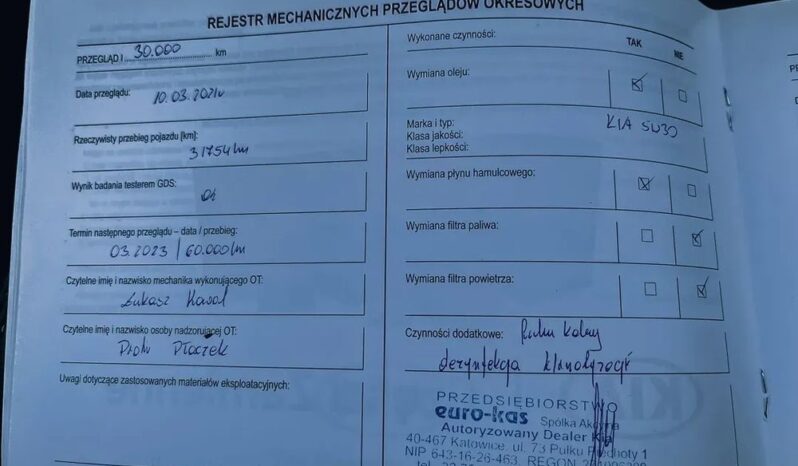 REJESTR MECHANICZNYCH PRZEGLĄDÓW OKRESOWYCH
PRZEGLĄD I 30.000 km
Data przeglądu:
10.03.2021r
Rzeczywisty przebieg pojazdu [km]:
31754 km
Wynik badania testerem GDS:
Ok
Termin następnego przeglądu – data / przebieg:
03.2023 / 60.000km
Czytelne imię i nazwisko mechanika wykonującego OT:
Łukasz Kowal
Czytelne imię i nazwisko osoby nadzorującej OT:
Piotr Płaczek
Uwagi dotyczące zastosowanych materiałów eksploatacyjnych:
Wykonane czynności:
TAK
NIE
Wymiana oleju:
Marka i typ:
KIA 5W30
Klasa jakości:
Klasa lepkości:
Wymiana płynu hamulcowego:
Wymiana filtra paliwa:
Wymiana filtra powietrza:
Czynności dodatkowe:
dezynfekcja klimatyzacji
PRZEDSIĘBIORSTWO
euro-kas Spółka Akcyjna
Autoryzowany Dealer Kia
40-467 Katowice, ul. 73 Pułku Piechoty 1
NIP 643-16-26-463, REGON